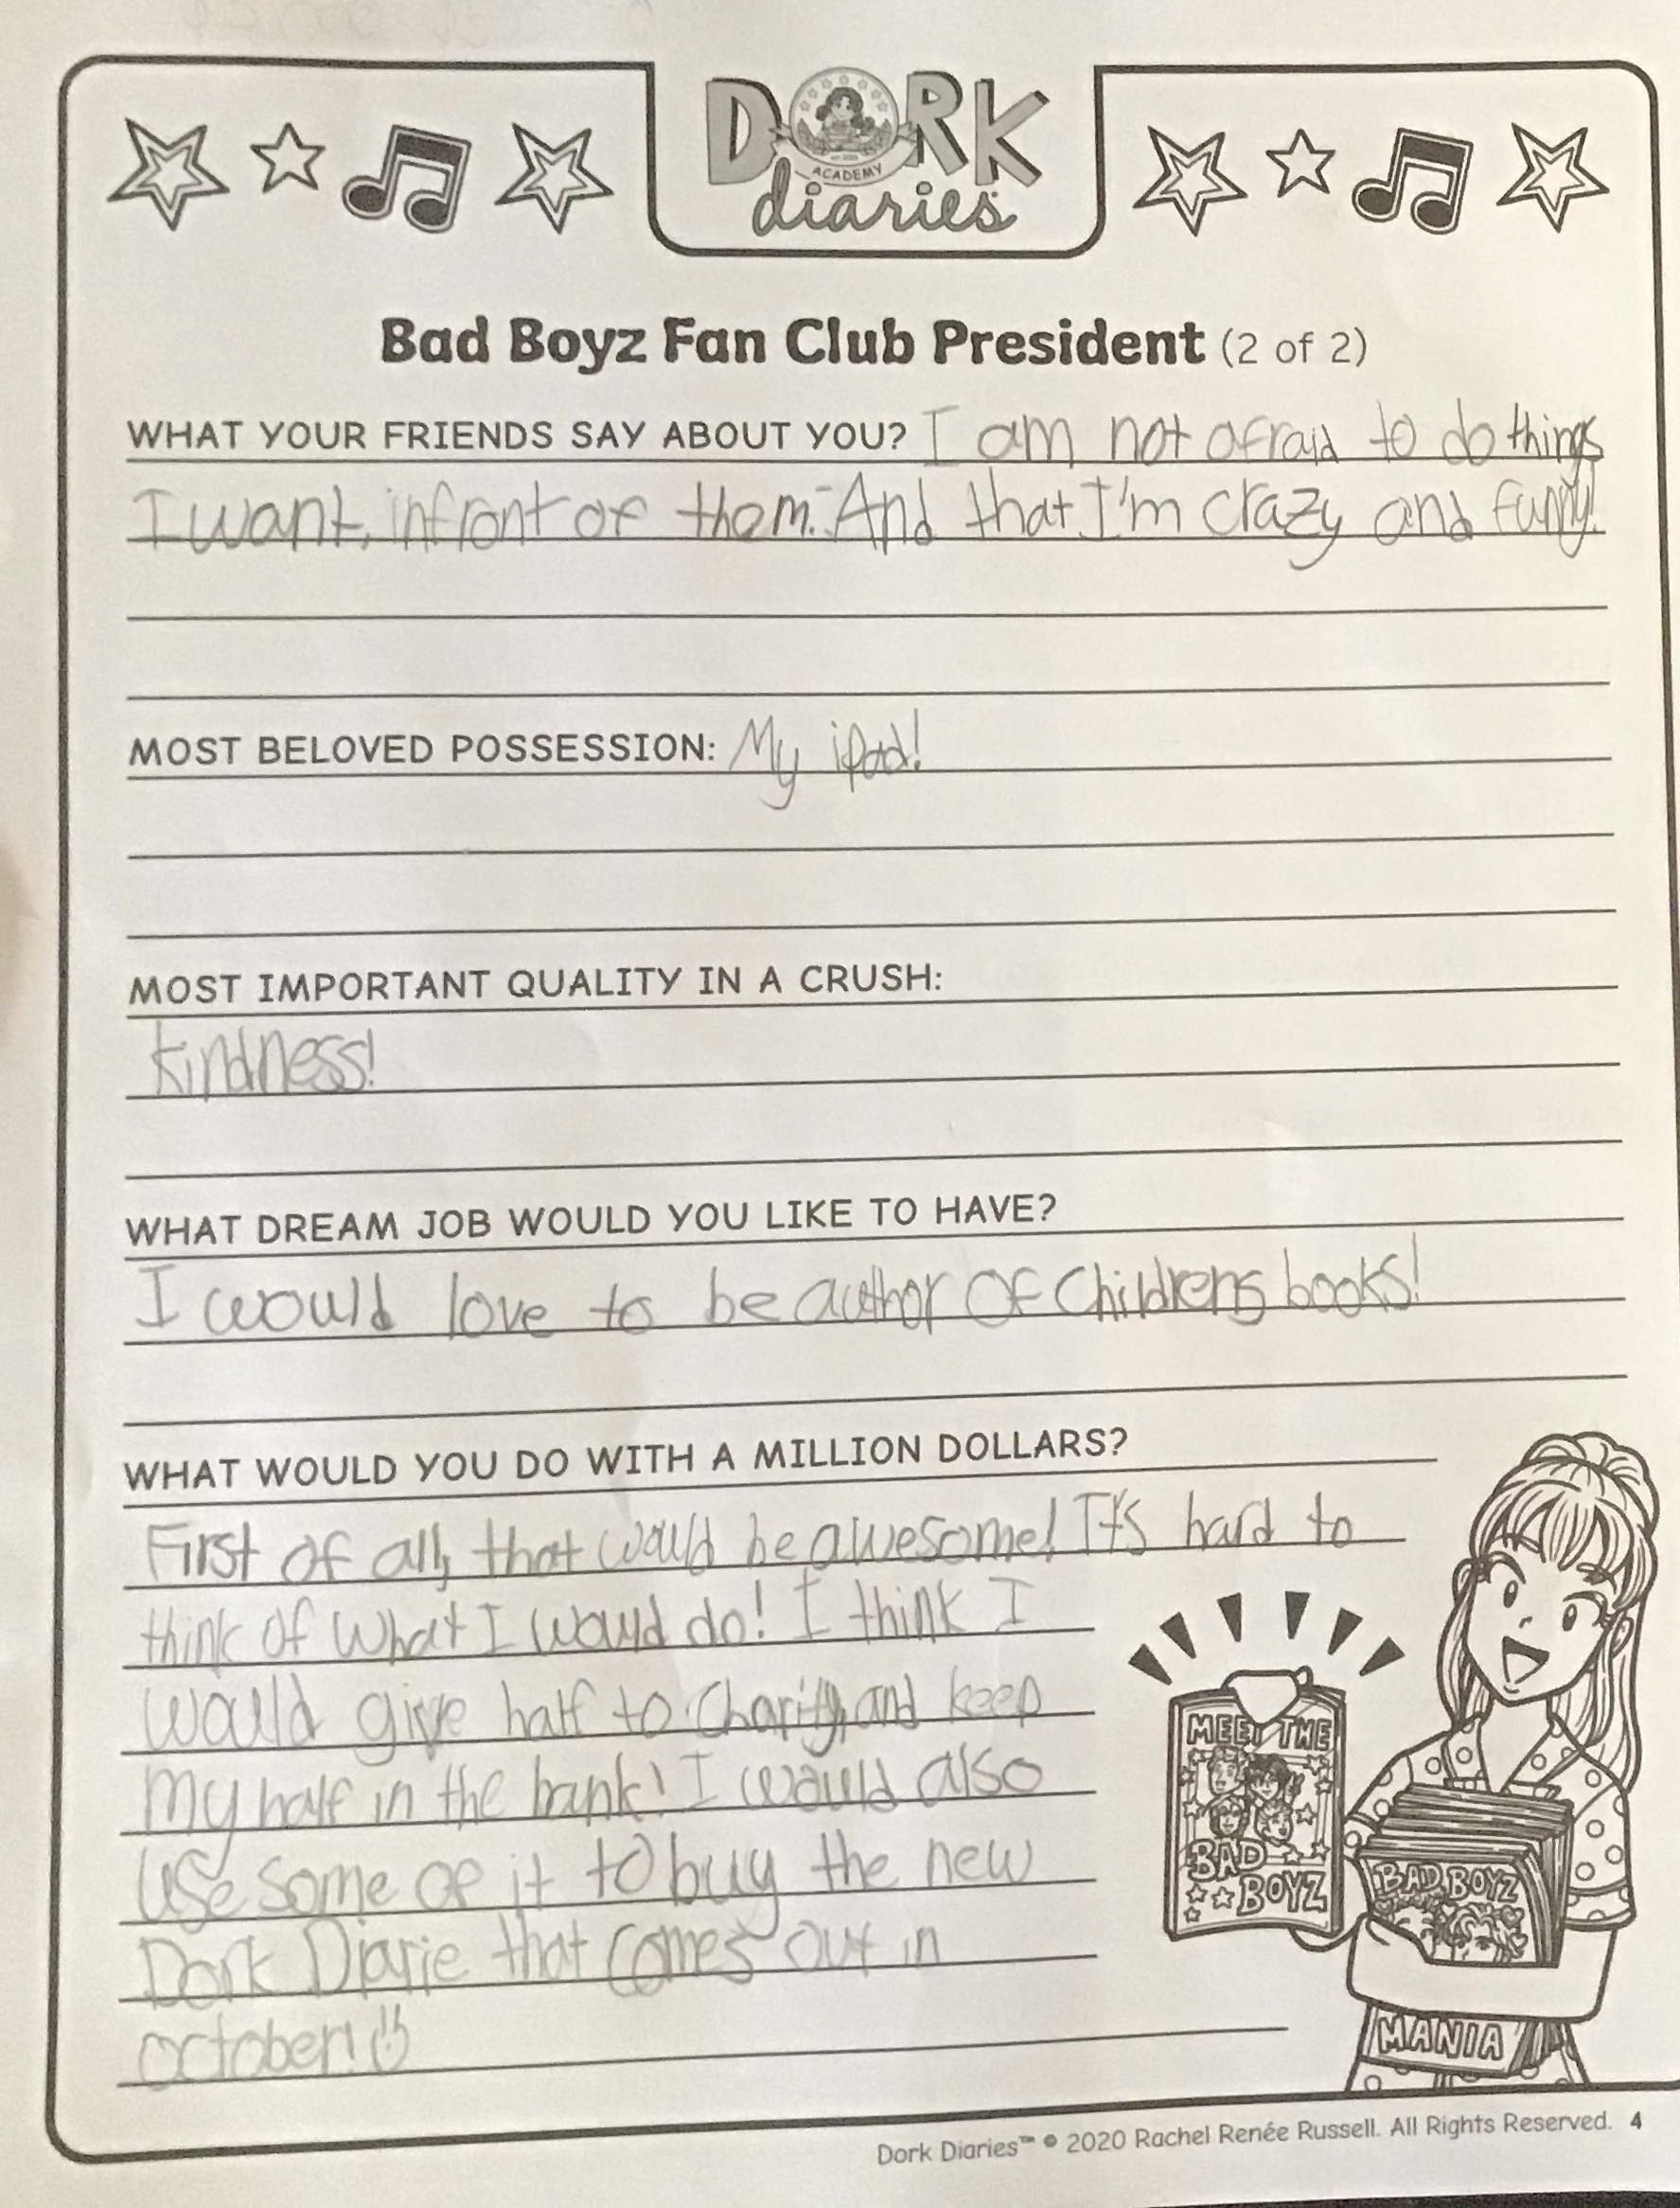 DORK
ACADEMY
diaries
Bad Boyz Fan Club President (2 of 2)
WHAT YOUR FRIENDS SAY ABOUT YOU? I am not afraid to do things
I want, infront of them. And that I'm crazy and funny!
MOST BELOVED POSSESSION: My ipad!
MOST IMPORTANT QUALITY IN A CRUSH:
kindness!
WHAT DREAM JOB WOULD YOU LIKE TO HAVE?
I would love to be author of Childrens books!
WHAT WOULD YOU DO WITH A MILLION DOLLARS?
First of all, that would be awesome! It's hard to
think of what I would do! I think I
would give half to Charity, and keep
my half in the bank! I would also
use some of it to buy the new
Dork Diarie that comes out in
october!
MEET THE
BAD
BOYZ
BAD BOYZ
MANIA
Dork Diaries™ © 2020 Rachel Renée Russell. All Rights Reserved. 4